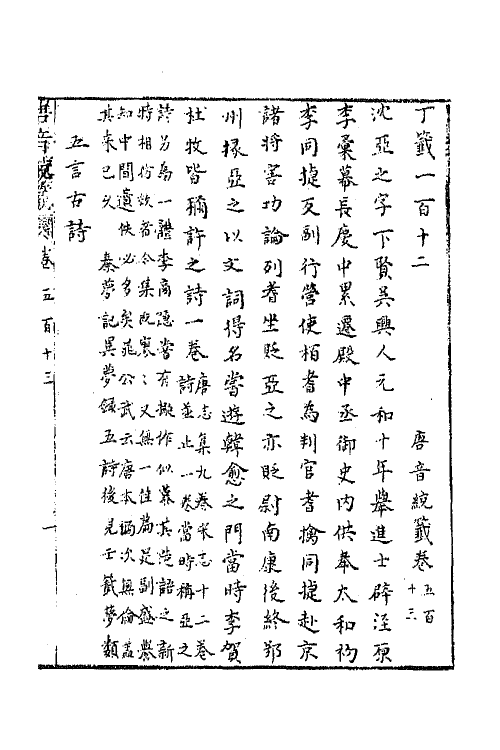 丁籤一百十二　唐音統籤卷五百十三
沈亞之字下賢吳興人元和十年舉進士辟涇原
李彙幕長慶中累遷殿中丞御史內供奉太和初
李同捷反副行營使栢耆為判官耆擒同捷赴京
諸將害功論列耆坐貶亞之亦貶尉南康後終郢
州掾亞之以文詞得名嘗遊韓愈之門當時李賀
杜牧皆稱許之詩一卷
唐志集九卷宋志十二卷
詩並止一卷當時稱亞之
詩另為一體李商隱嘗有擬作似慕其造語之新
時相倣效者今集既寥〻又無一佳篇足副盛譽
知中間遺佚必多矣晁公武云唐本編次無倫蓋
其來已久　秦夢記異夢錄五詩後見壬籤夢類
五言古詩
唐音統籤　卷五百十三　一